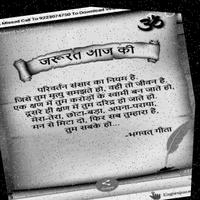 Missed Call To 9223074750 To Download
ॐ
जरूरत आज की
परिवर्तन संसार का नियम है.
जिसे तुम मृत्यु समझते हो, वही तो जीवन है.
एक क्षण में तुम करोड़ों के स्वामी बन जाते हो,
दूसरे ही क्षण में तुम दरिद्र हो जाते हो.
मेरा-तेरा, छोटा-बड़ा, अपना-पराया,
मन से मिटा दो, फिर सब तुम्हारा है,
तुम सबके हो...
-भगवत् गीता